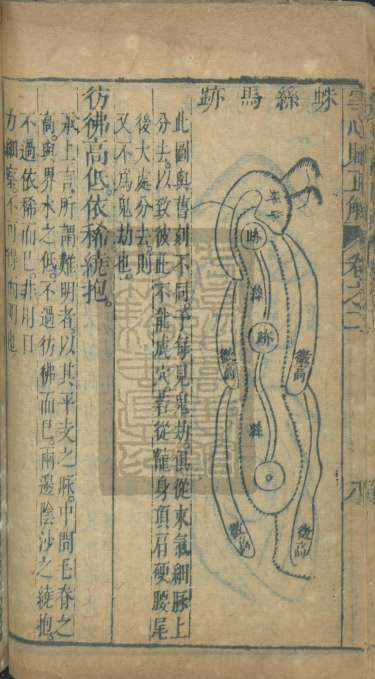 雪心賦正解 卷之二
蛛絲馬跡
跡
絲
跡
微高
微高
絲
微高
微高
此圖與舊刻不同予每見鬼劫俱從東氣細脉上
分去以致彼此不能成穴若從龍身頂肩硬腰尾
後大處分去則
又不爲鬼劫也
彷彿高低依稀繞抱。
承上言所謂難明者以其平支之脉中間毛脊之
高與界水之低不過彷彿而已兩邊陰沙之繞抱
不過依稀而已非用目
力細察不可得而明也